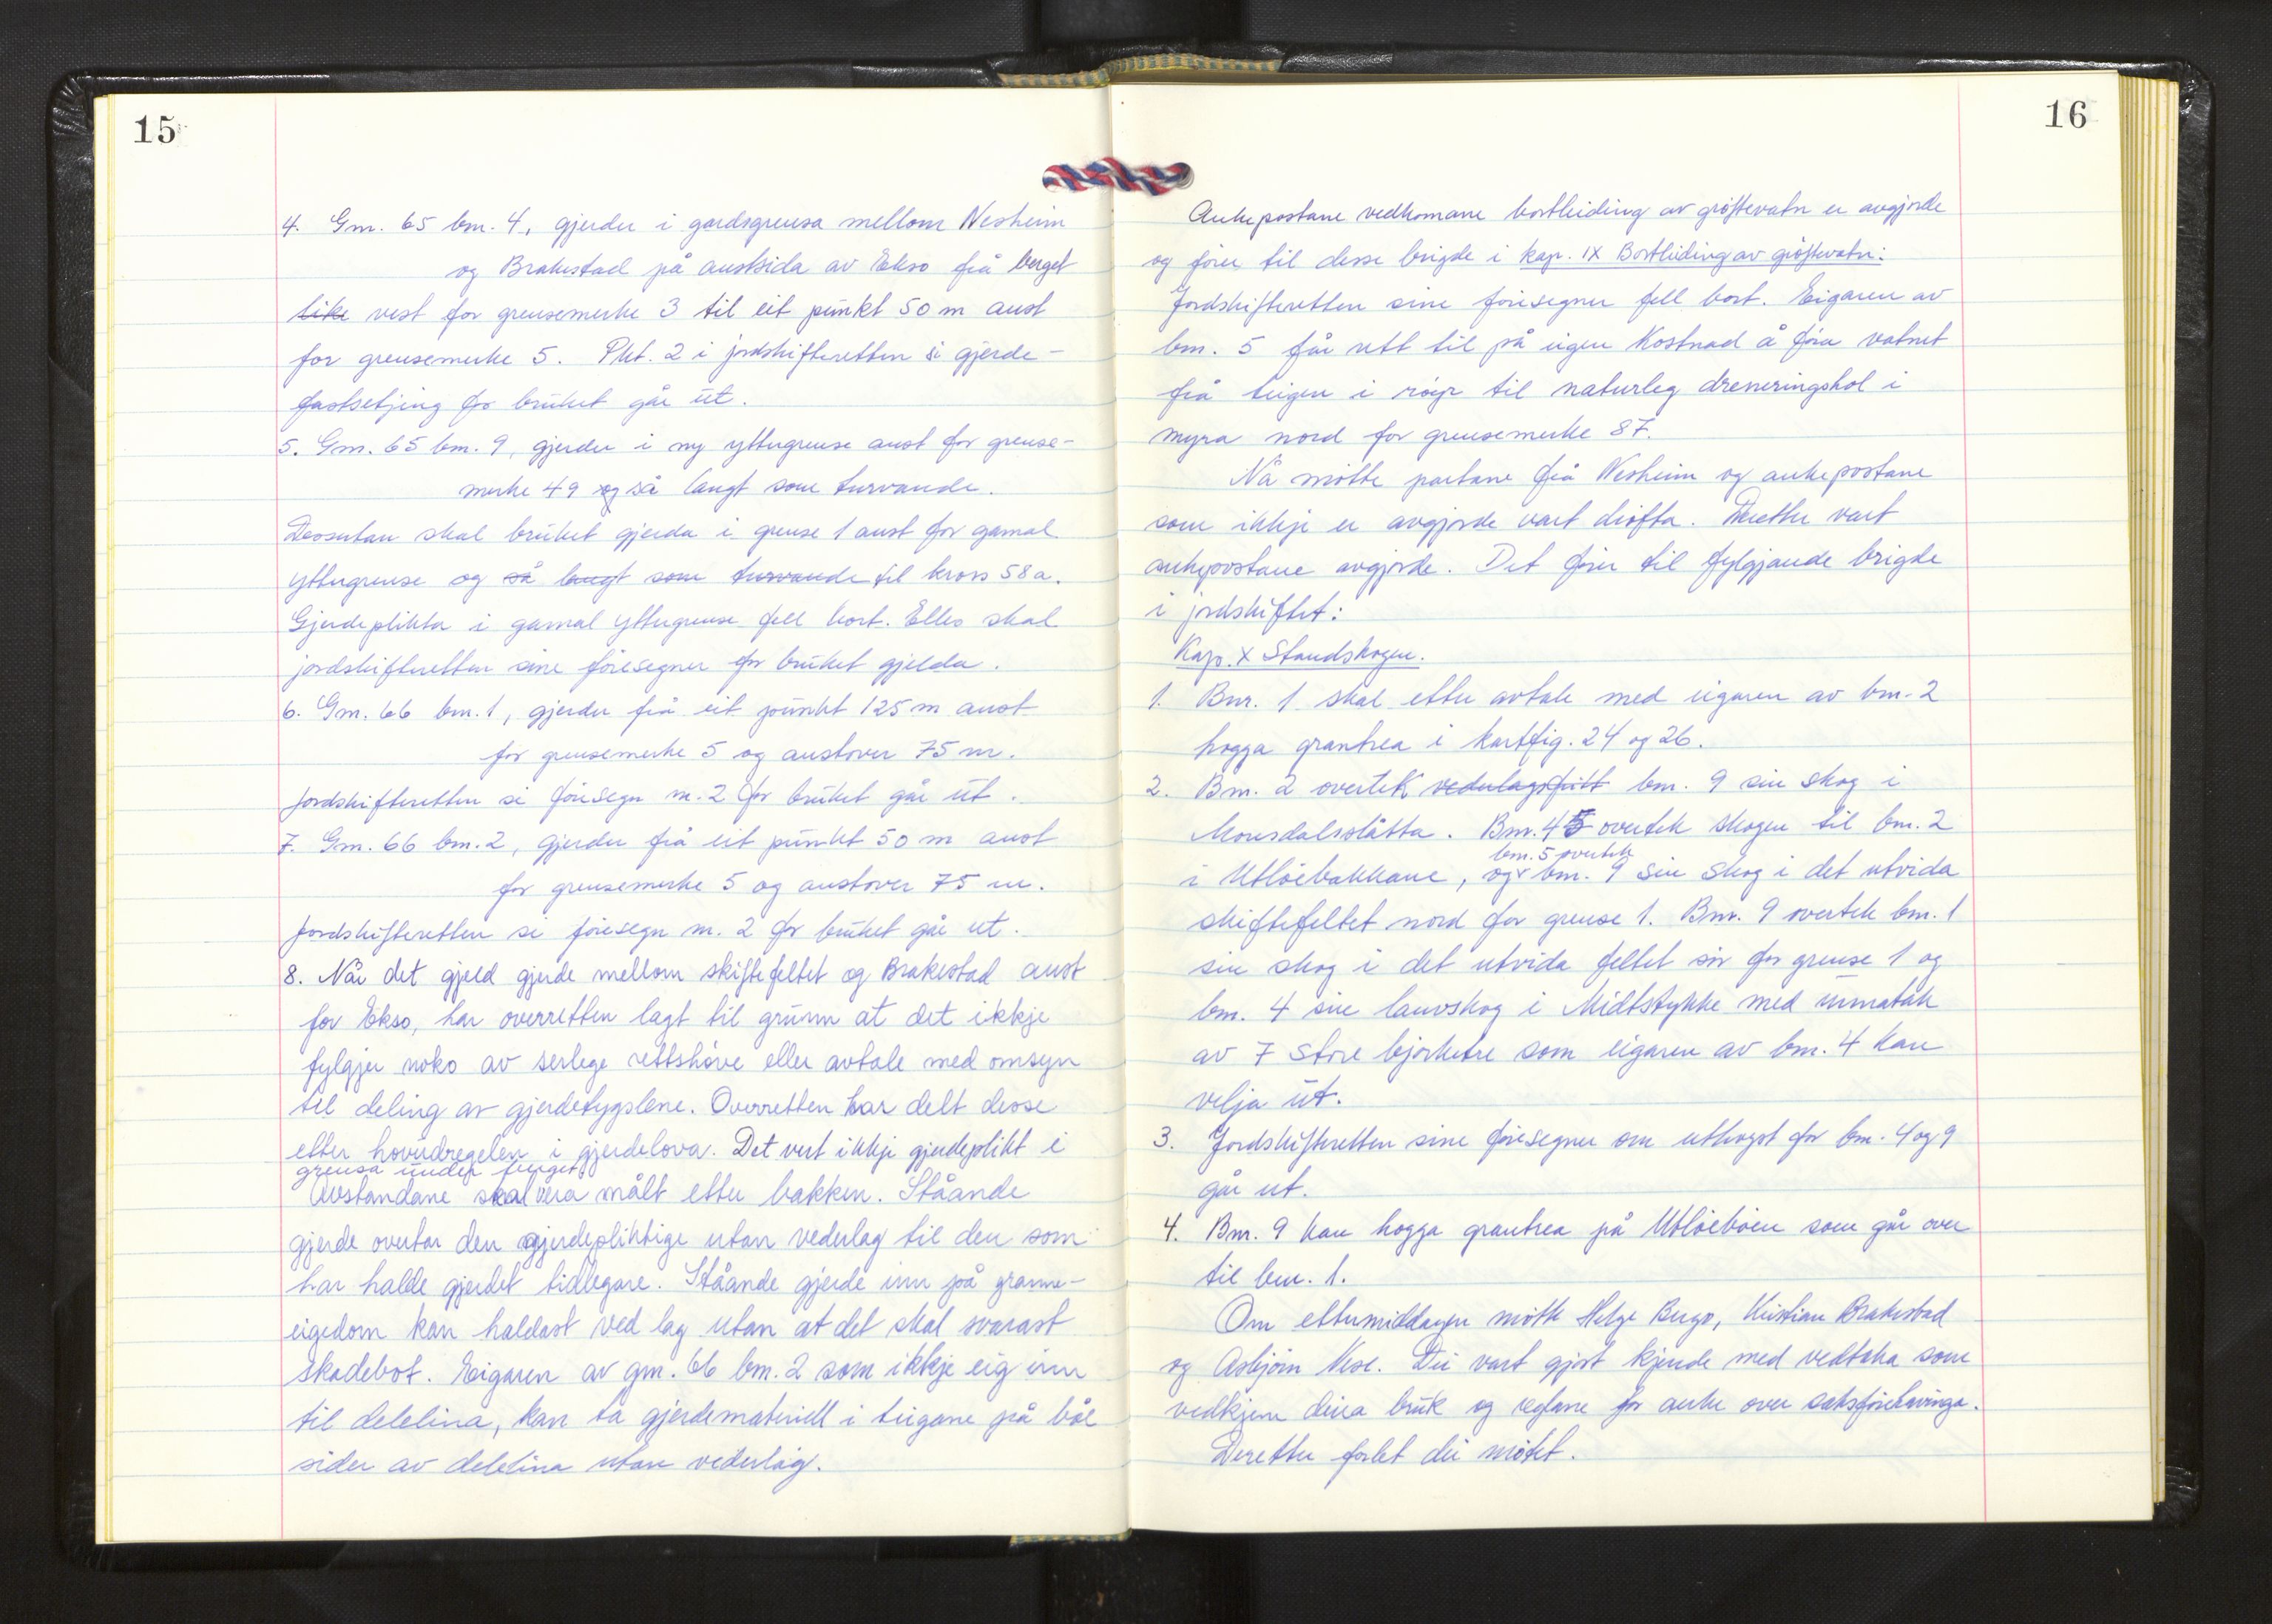 15
4. Gnr. 65 bnr. 4, gjerder i gardsgrensa mellom Nesheim
og Brakestad på austsida av Ekso frå berget
like vest for grensemerke 3 til eit punkt 50 m aust
for grensemerke 5. Pkt. 2 i jordskifteretten si gjerde-
fastsetjing for bruket går ut.
5. Gnr. 65 bnr. 9, gjerder i ny yttergrense aust for grense-
merke 49 og så langt som turvande.
Dessutan skal bruket gjerda i grense 1 aust for gamal
yttergrense og så langt som turvande til kross 58a.
Gjerdeplikta i gamal yttergrense fell bort. Elles skal
jordskifteretten sine føresegner for bruket gjelda.
6. Gnr. 66 bnr. 1, gjerder frå eit punkt 125 m aust
for grensemerke 5 og austover 75 m.
Jordskifteretten si føresegn nr. 2 for bruket går ut.
7. Gnr. 66 bnr. 2, gjerder frå eit punkt 50 m aust
for grensemerke 5 og austover 75 m.
Jordskifteretten si føresegn nr. 2 for bruket går ut.
8. Når det gjeld gjerde mellom skiftefeltet og Brakestad aust
for Ekso, har overretten lagt til grunn at det ikkje
fylgjer noko av serlege rettshøve eller avtale med omsyn
til deling av gjerdetyngslene. Overretten har delt desse
etter hovudregelen i gjerdelova. Det vert ikkje gjerdeplikt i
grensa under berget
Avstandane skal vera målt etter bakken. Ståande
gjerde overtar den gjerdepliktige utan vederlag til den som
har halde gjerdet tidlegare. Ståande gjerde inn på granne-
eigedom kan haldast ved lag utan at det skal svarast
skadebot. Eigaren av gnr. 66 bnr. 2 som ikkje eig inn
til delelina, kan ta gjerdemateriell i teigane på båe
sider av delelina utan vederlag.
16
Ankepostane vedkomane bortleiding av grøftevatn er avgjorde
og fører til desse brigde i kap. IX Bortleiding av grøftevatn:
Jordskifteretten sine føresegner fell bort. Eigaren av
bnr. 5 får rett til på eigen kostnad å føra vatnet
frå teigen i røyr til naturleg dreneringshol i
myra nord for grensemerke 87.
Nå møtte partane frå Nesheim og ankepostane
som ikkje er avgjorde vart drøfta. Deretter vart
ankepostane avgjorde. Det fører til fylgjande brigde
i jordskiftet:
Kap. X Standskogen.
1. Bnr. 1 skal etter avtale med eigaren av bnr. 2
hogga grantrea i kartfig. 24 og 26.
2. Bnr. 2 overtek vederlagsfritt bnr. 9 sin skog i
Monsdalsslåtta. Bnr. 45 overtek skogen til bnr. 2
bnr. 5 overtek
i Utløebakkane, og bnr. 9 sin skog i det utvida
skiftefeltet nord for grense 1. Bnr. 9 overtek bnr. 1
sin skog i det utvida feltet sør for grense 1 og
bnr. 4 sin lauvskog i Midtstykke med unnatak
av 7 store bjørketre som eigaren av bnr. 4 kan
velja ut.
3. Jordskifteretten sine føresegner om uthogst for bnr. 4 og 9
går ut.
4. Bnr. 9 kan hogga grantrea på Utløebøen som går over
til bnr. 1.
Om ettermiddagen møtte Helge Berge, Kristian Brakestad
og Asbjørn Nese. Dei vart gjort kjende med vedtaka som
vedkjem deira bruk og reglane for anke over saksførehavinga.
Deretter forlet dei møtet.